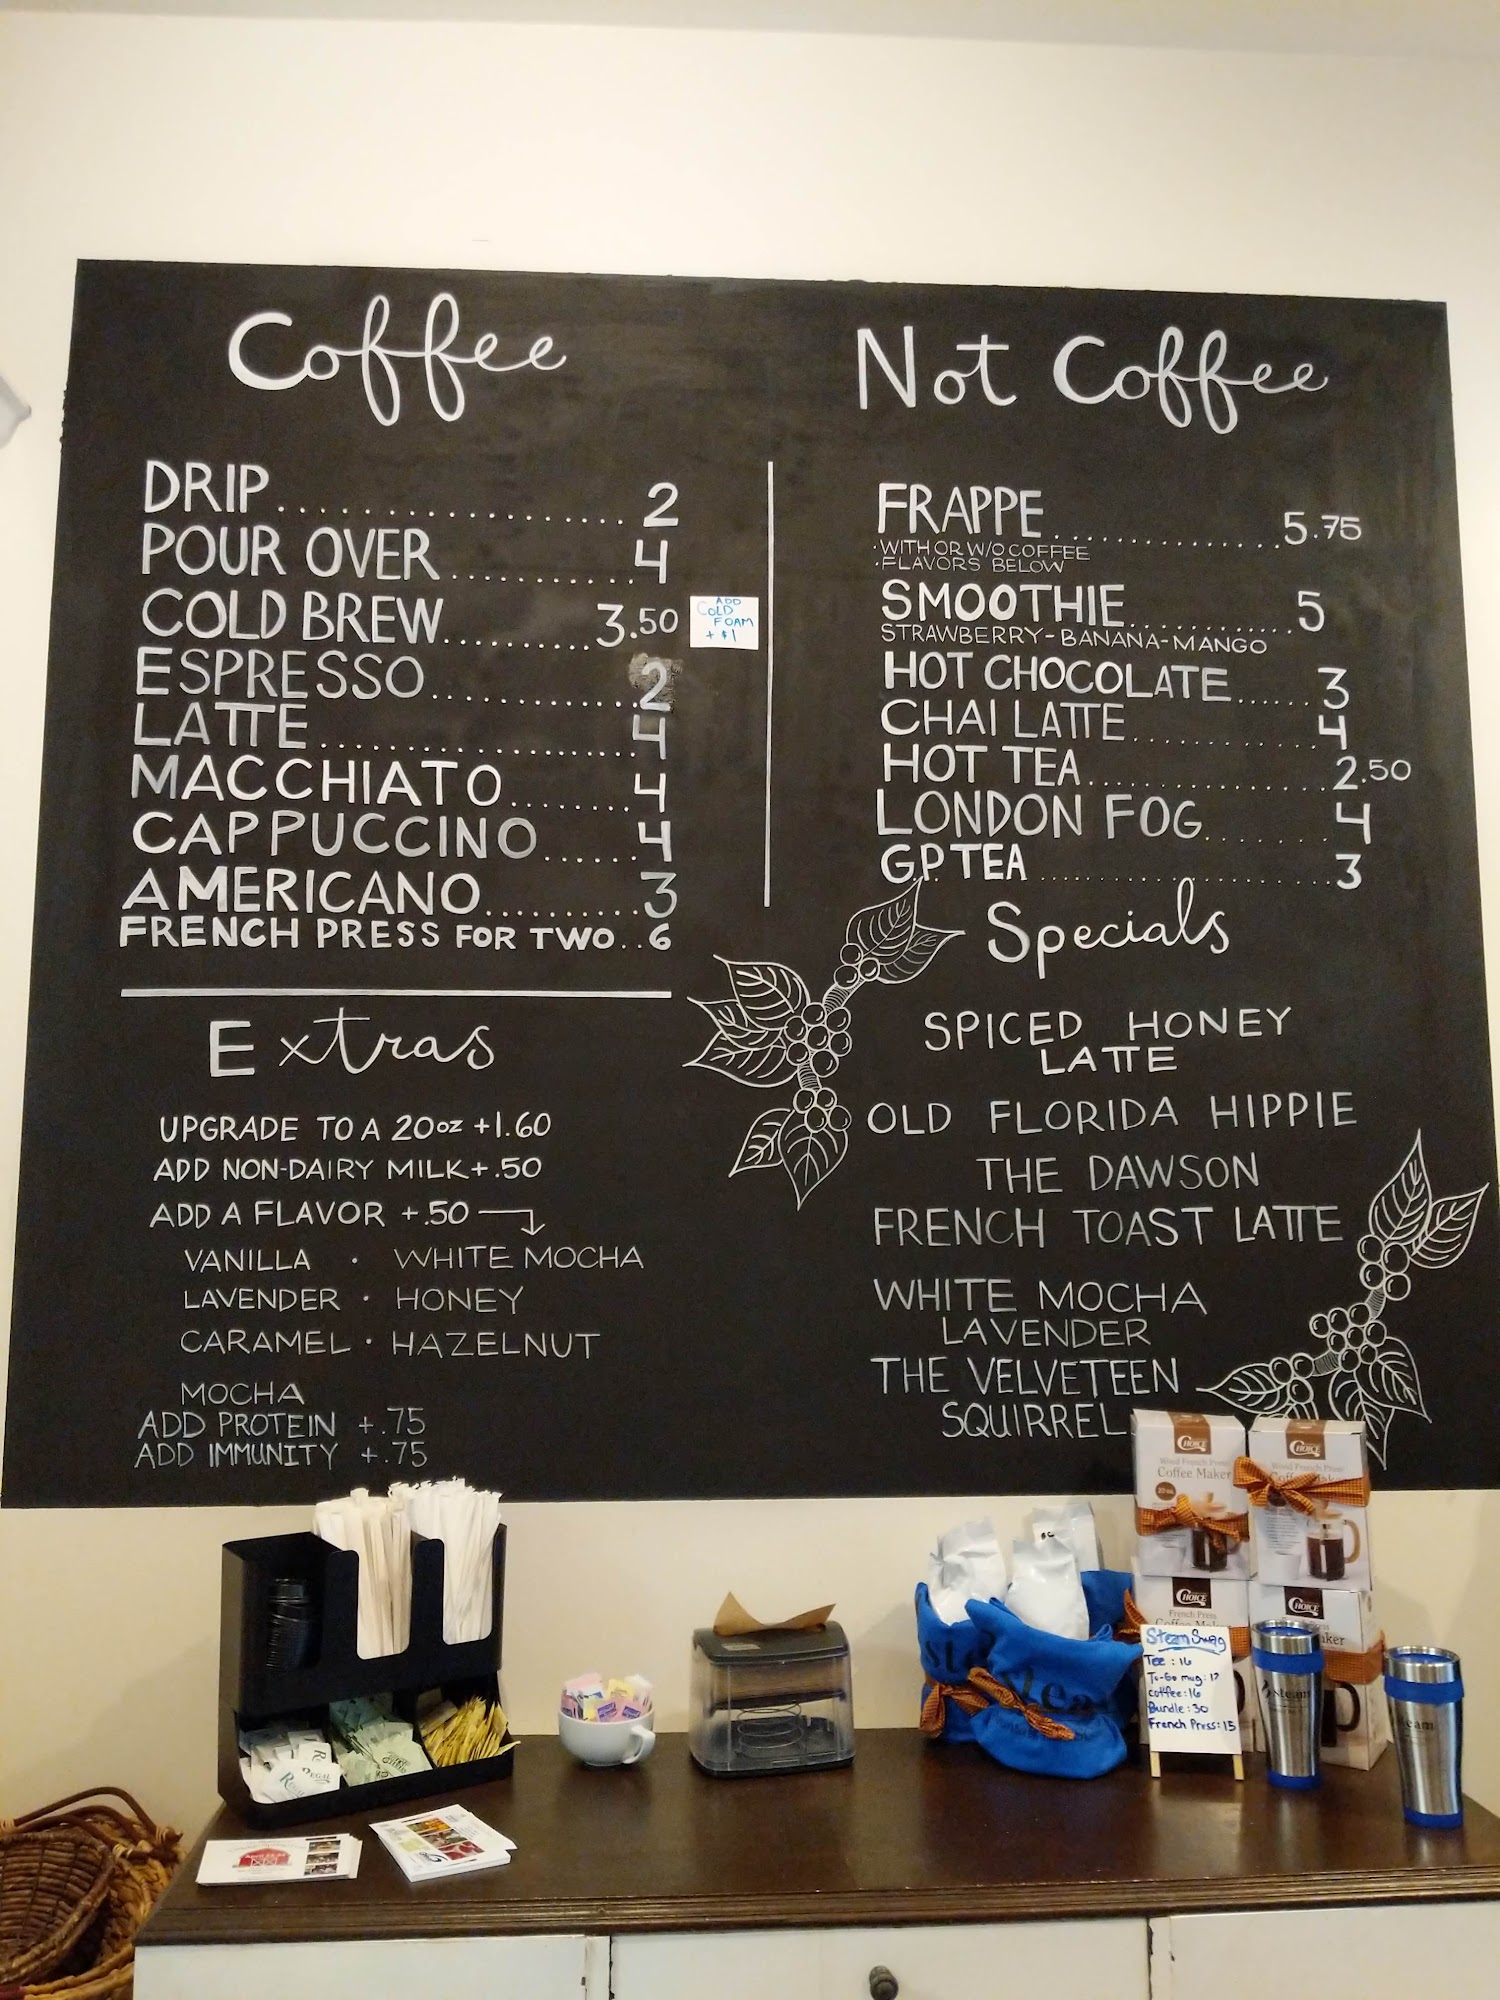 Coffee
DRIP.................... 2
POUR OVER........... 4
COLD BREW......... 3.50
ADD
COLD
FOAM
+ $1
ESPRESSO............ 2
LATTE.................. 4
MACCHIATO........ 4
CAPPUCCINO...... 4
AMERICANO......... 3
FRENCH PRESS FOR TWO.. 6
Extras
UPGRADE TO A 20oz +1.60
ADD NON-DAIRY MILK +.50
ADD A FLAVOR +.50
VANILLA · WHITE MOCHA
LAVENDER · HONEY
CARAMEL · HAZELNUT
MOCHA
ADD PROTEIN +.75
ADD IMMUNITY +.75
Not Coffee
FRAPPE............... 5.75
·WITH OR W/O COFFEE
·FLAVORS BELOW
SMOOTHIE........... 5
STRAWBERRY-BANANA-MANGO
HOT CHOCOLATE...... 3
CHAI LATTE............ 4
HOT TEA............... 2.50
LONDON FOG........ 4
G.P TEA ................ 3
Specials
SPICED HONEY
LATTE
OLD FLORIDA HIPPIE
THE DAWSON
FRENCH TOAST LATTE
WHITE MOCHA
LAVENDER
THE VELVETEEN
SQUIRREL
CHOICE
Wood French Press
Coffee Maker
CHOICE
Wood French Press
CHOICE
French Press
Coffee Maker
CHOICE
Steam Swag
Tee : 16
To-Go mug : 12
coffee : 16
Bundle : 30
French Press : 15
steam
steam